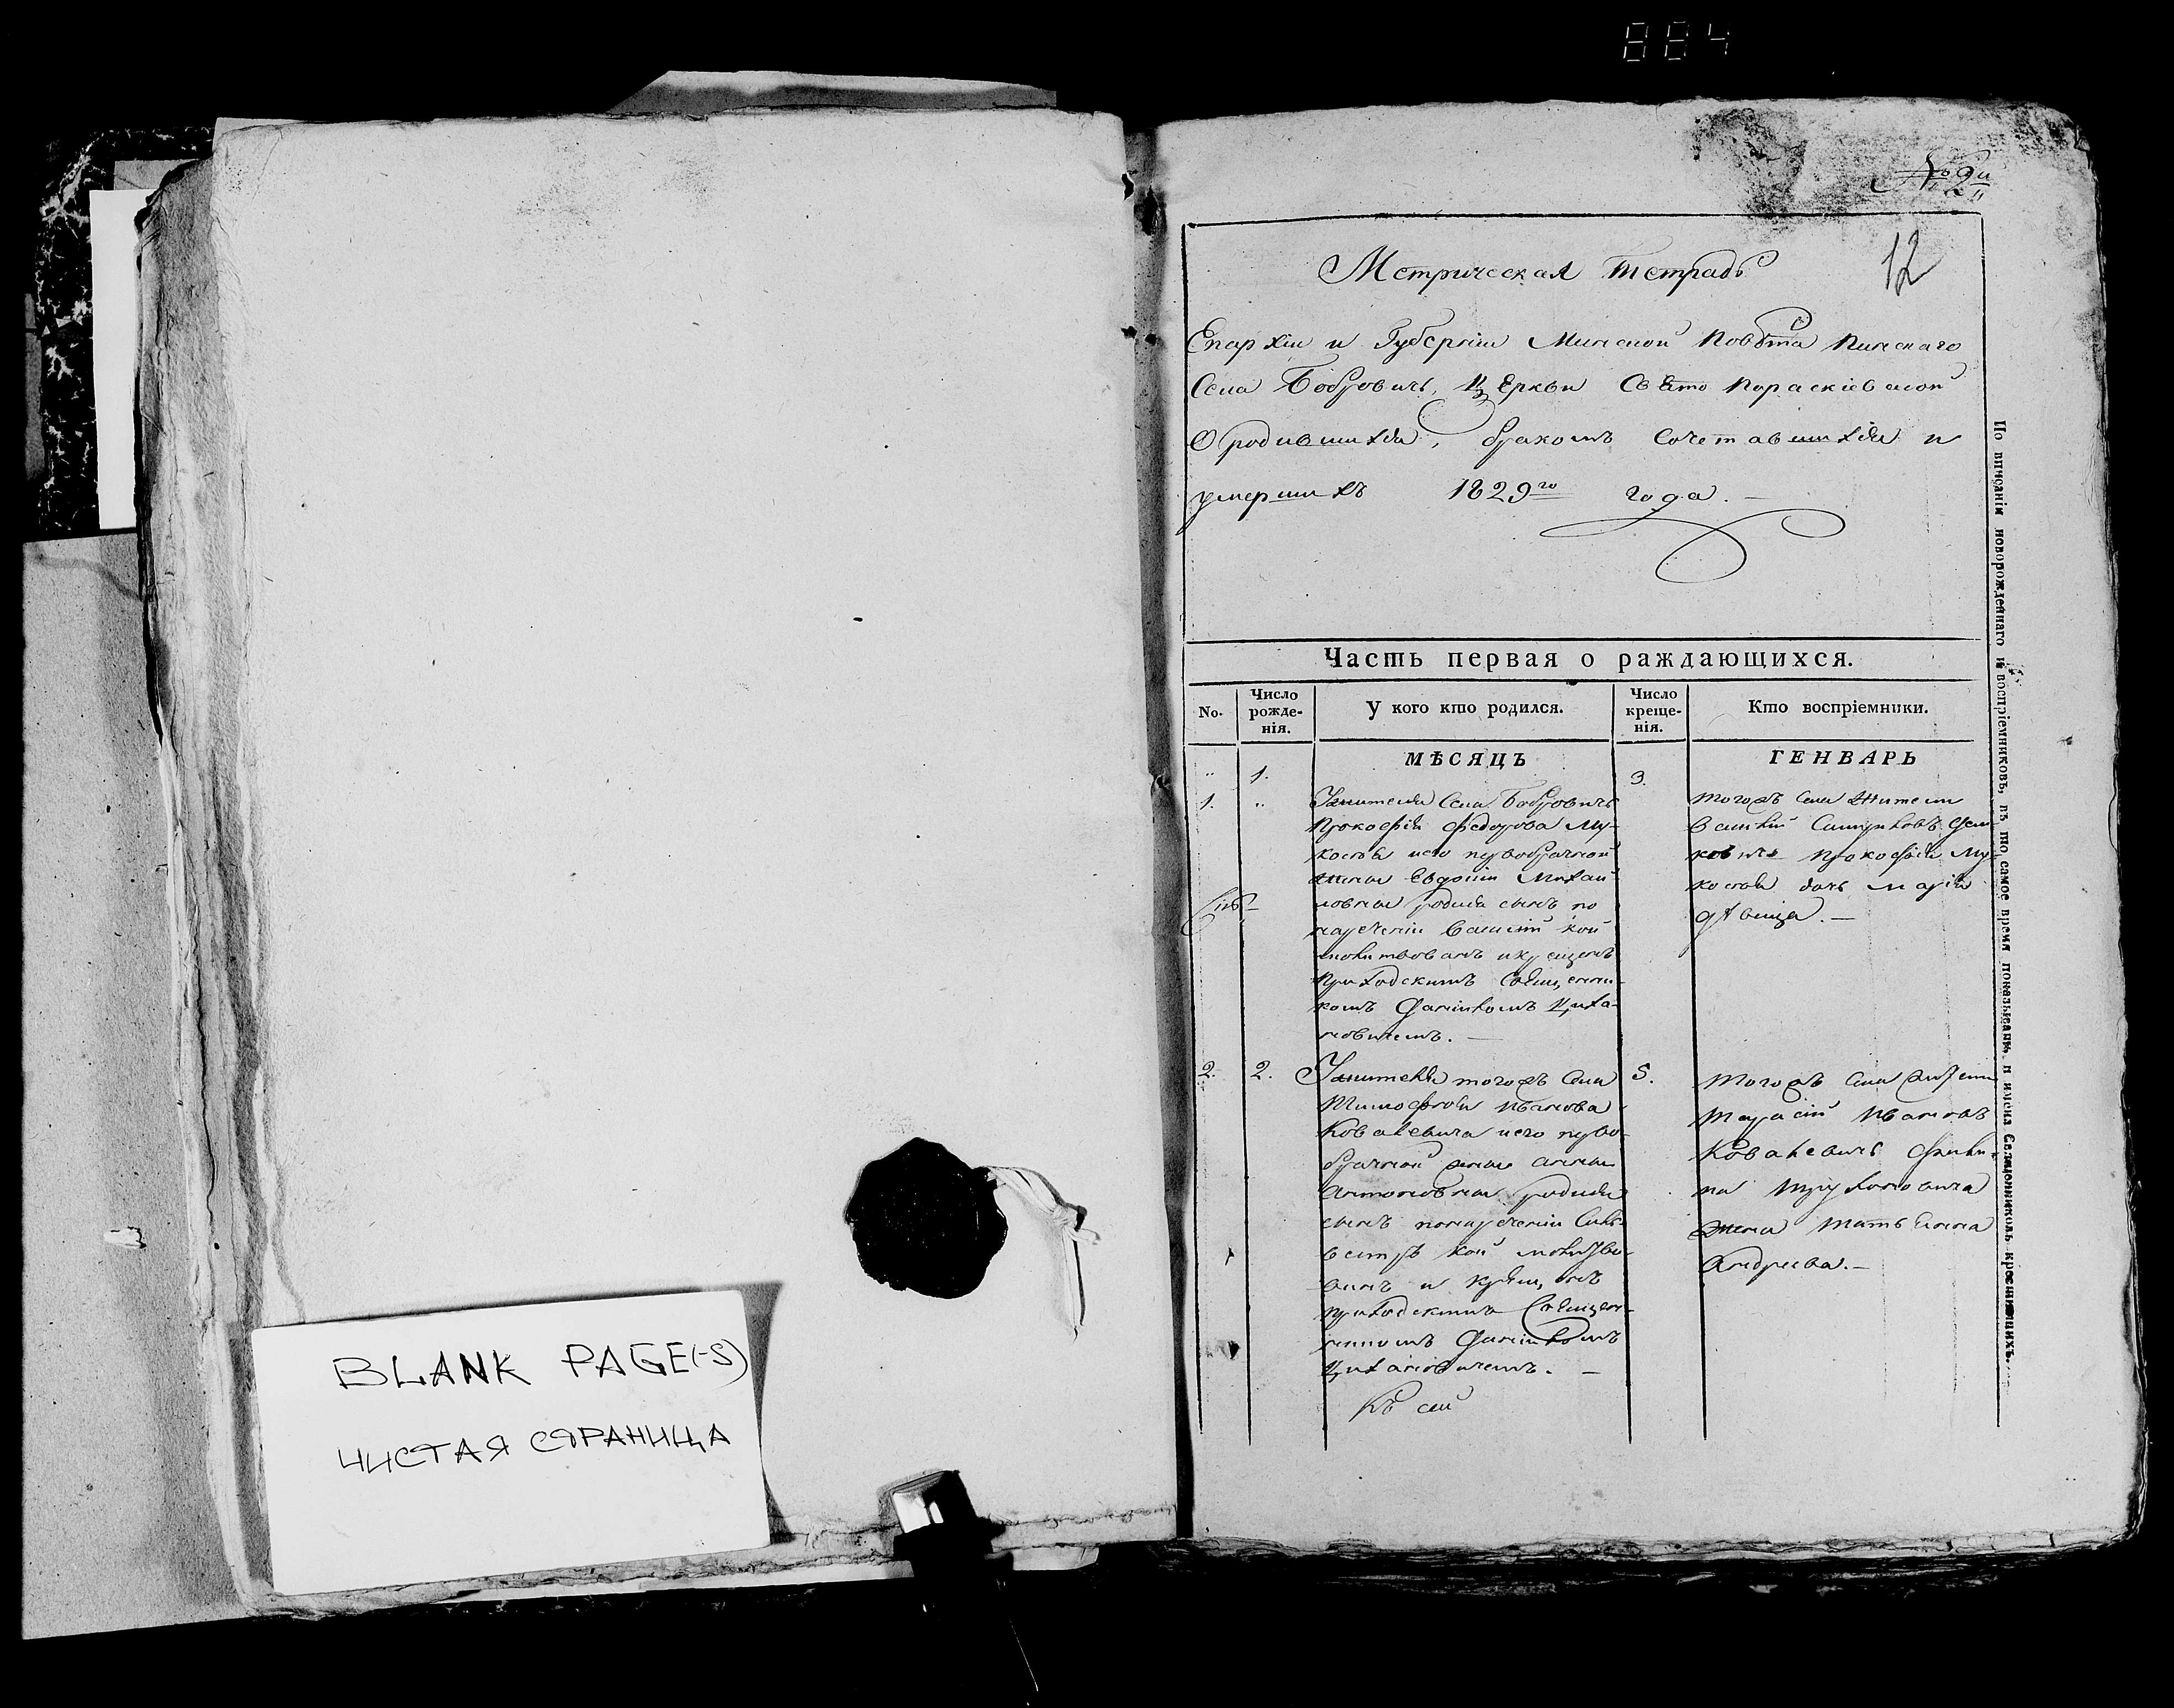 884
12
Метрическая тетрадь
Епархіи и Губерніи Минской Повѣта Пинскаго
Села Бобровичь, Церкви Свѣто Параскіевской
О родившихся, бракомъ Сочетавшихся и
умершихъ 1829го года.
Часть первая о раждающихся.
No.
Число
рожде-
нія.
У кого кто родился.
Число
креще-
нія.
Кто воспріемники.
МѢСЯЦЪ
ГЕНВАРЬ
1.
3.
1.
Ужителя Села Бобровичь
Прокофія Федорова Му-
его первобрачной
жены Евдокіи Михаи
ловны родися сынъ по
нареченіи Василій кой
молитвованъ и крещенъ
Приходскимъ Священни-
комъ Циха-
новичемъ.
тогожъ Села жители
Василій
Прокофія Му-
дочь Марія
дѣвица.
2.
2.
Ужителя тогожъ Села
Тимофея Иванова
Ковалевича и его перво-
брачной жены Анны
Антоновны родися
сынъ понареченіи Силь-
вестръ кой молитво-
ванъ и крещенъ
приходскимъ Священ-
никомъ
Цихановичемъ.
5.
тогожъ Села жители
Тарасій Ивановъ
Ковалевичь Филип-
па
жена Татьяна
Андреева.
Къ сей
По вписаніи новорожденнаго и воспріемниковъ, въ то самое время показывать и имена Священниковъ крестившихъ.
BLANK PAGE(-S)
ЧИСТАЯ СТРАНИЦА